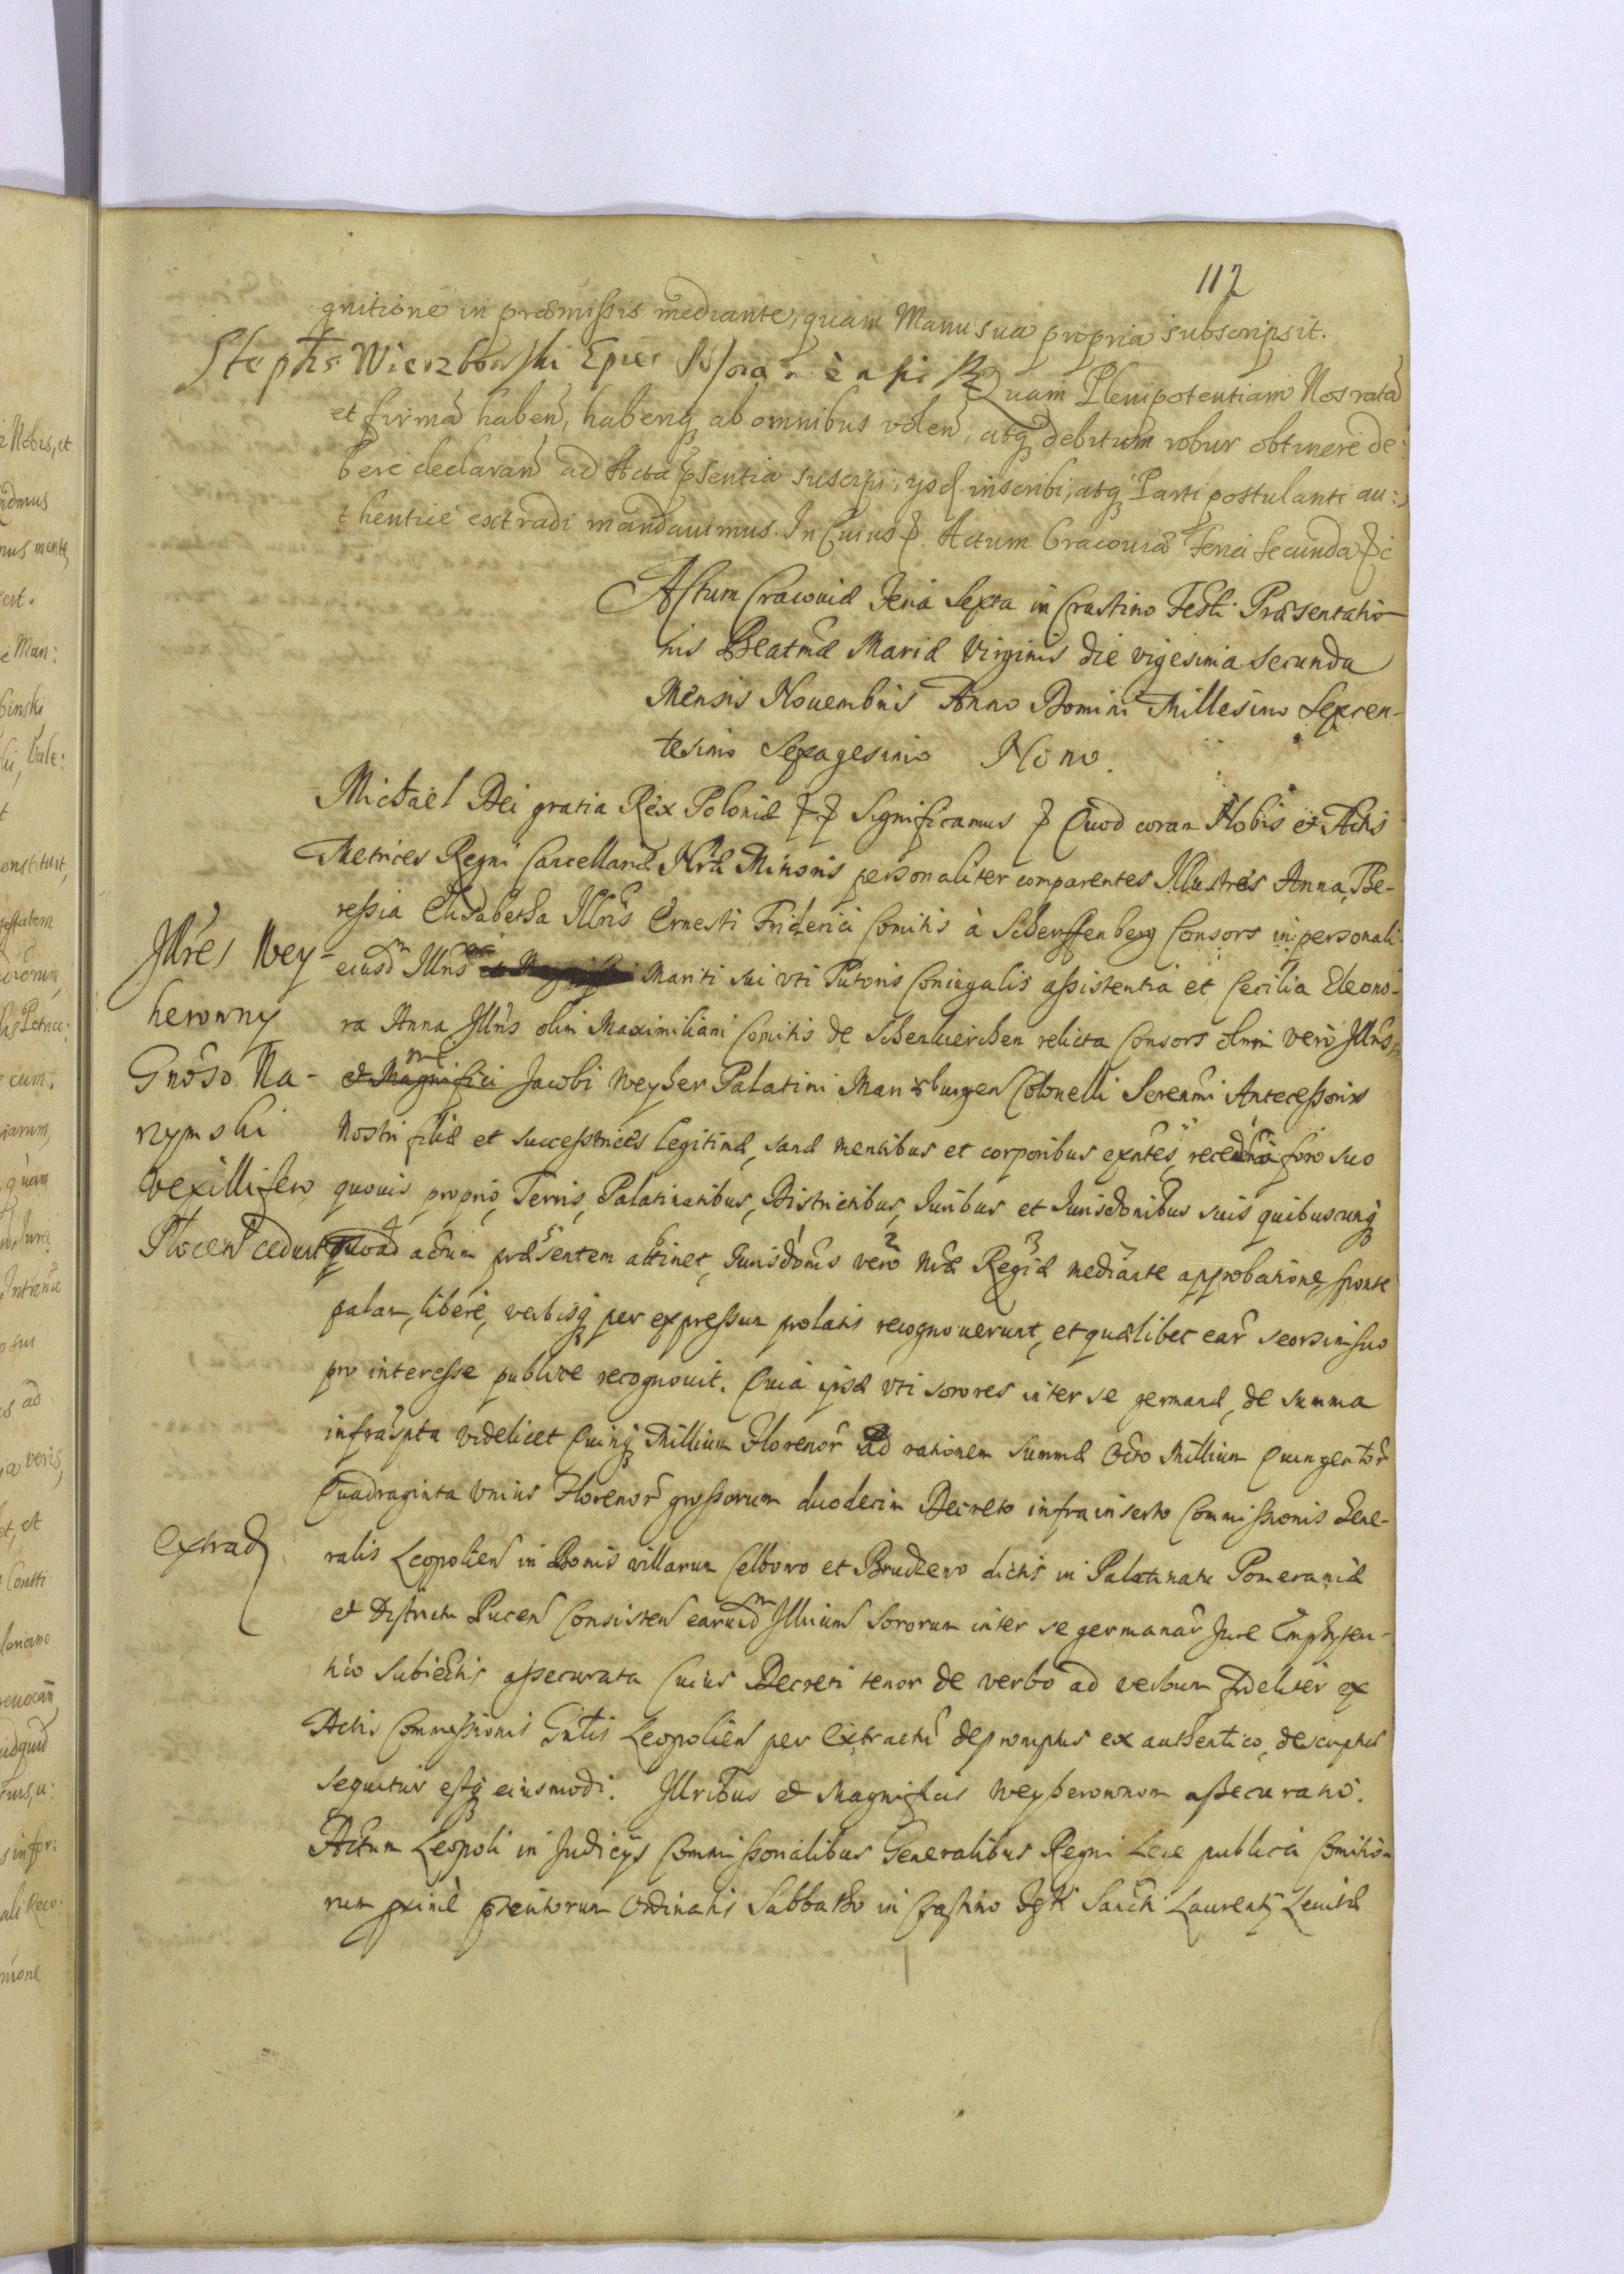 112
gnitione in præmissis mediante, quam Manu sua propria subscripsit.
Stephs Wierzbowski Epūs Posnaniensis Quam Plenipotentiam Nos ratā
et firmā haberi, haberiq ab omnibus volen, atq debitum robur obtinere de:
bere declaran ad Acta pāsentia suscipi, ysq inscribi, atq Parti postulanti au:
thentice extradi mandauimus. In Cuius p. Actum Cracouiæ Feria Secunda p c
Actum Cracouiæ Feria Sexta in Crastino Festi Præsentatio
nis Beatmæ Mariæ Virginis die vigesima secunda
Mensis Nouembris Anno Domini Millesimo Sexcen-
tesimo Sexagesimo Nono.
Michael Dei gratia Rex Poloniæ pp Significamus p Quod coram Nobis et Actis
Metrices Regni Cancellariæ Nræ Minoris personaliter comparentes Illustres Anna, The-
ressia Elisabetha Illris Ernesti Friderici Comitis à Scherffenberg Consors in personali
eiusdm Illris Mariti sui vti Tutoris Coniugalis assistentia et Cecilia Eleono-
ra Anna Illris olim Maximiliani Comitis de relicta Consors olim verò Illris
et Magnifici Jacobi Weyher Palatini Mariæburgen Colonelli Serenmi Antecessoris
Nostri filiæ et successtrices legitimæ, sanæ mentibus et corporibus exntes, foro suo
quouis proprio, Terris, Palatinatibus, Districtibus, Iuribus et Iurisdonibus suis quibuscunq
quoad actum præsentem attinet, Iurisdonis verò Nræ Regiæ mediante approbatione, sponte
palam, liberè, verbisq per expressum prolatis recognouerunt, et quælibet ear seorsim suo
pro interesse publice recognouit. Quia ipsæ vti sorores inter se germanæ, de summa
infraspta videlicet Quinq Millium Florenor ad rationem Summæ Octo Millium Quingentor
Quadraginta Vnius Florenor grossorum duodecim Decreto infra inserto Commissionis Gene-
ralis Leopolien in Bonis villarum Celbowo et Brudzewo dictis in Palatinatu Pomeraniæ
et Districtu Pucen Consisten earundm Illrium Sororum inter se germanar Jure Emphyteu-
tico Subiectis assecurata Cuius Decreti tenor de verbo ad verbum fideliter ex
Actis Commissionis Gntis Leopolien per Extractu depromptus ex authentico, descriptus
sequitur estq eiusmodi. Illribus et Magnificis Weyherownom assecuratio.
Actum Leopoli in Judicÿs Commissorialibus Generalibus Regni Lege publica Comitio-
rum ordinatis Sabbatho in Crastino Festi Sancti Laurentÿ Leuitæ
Illres Wey-
herowny
Gnoso Na-
rzymski
Vexillifero
Plocen cedunt
Extrad